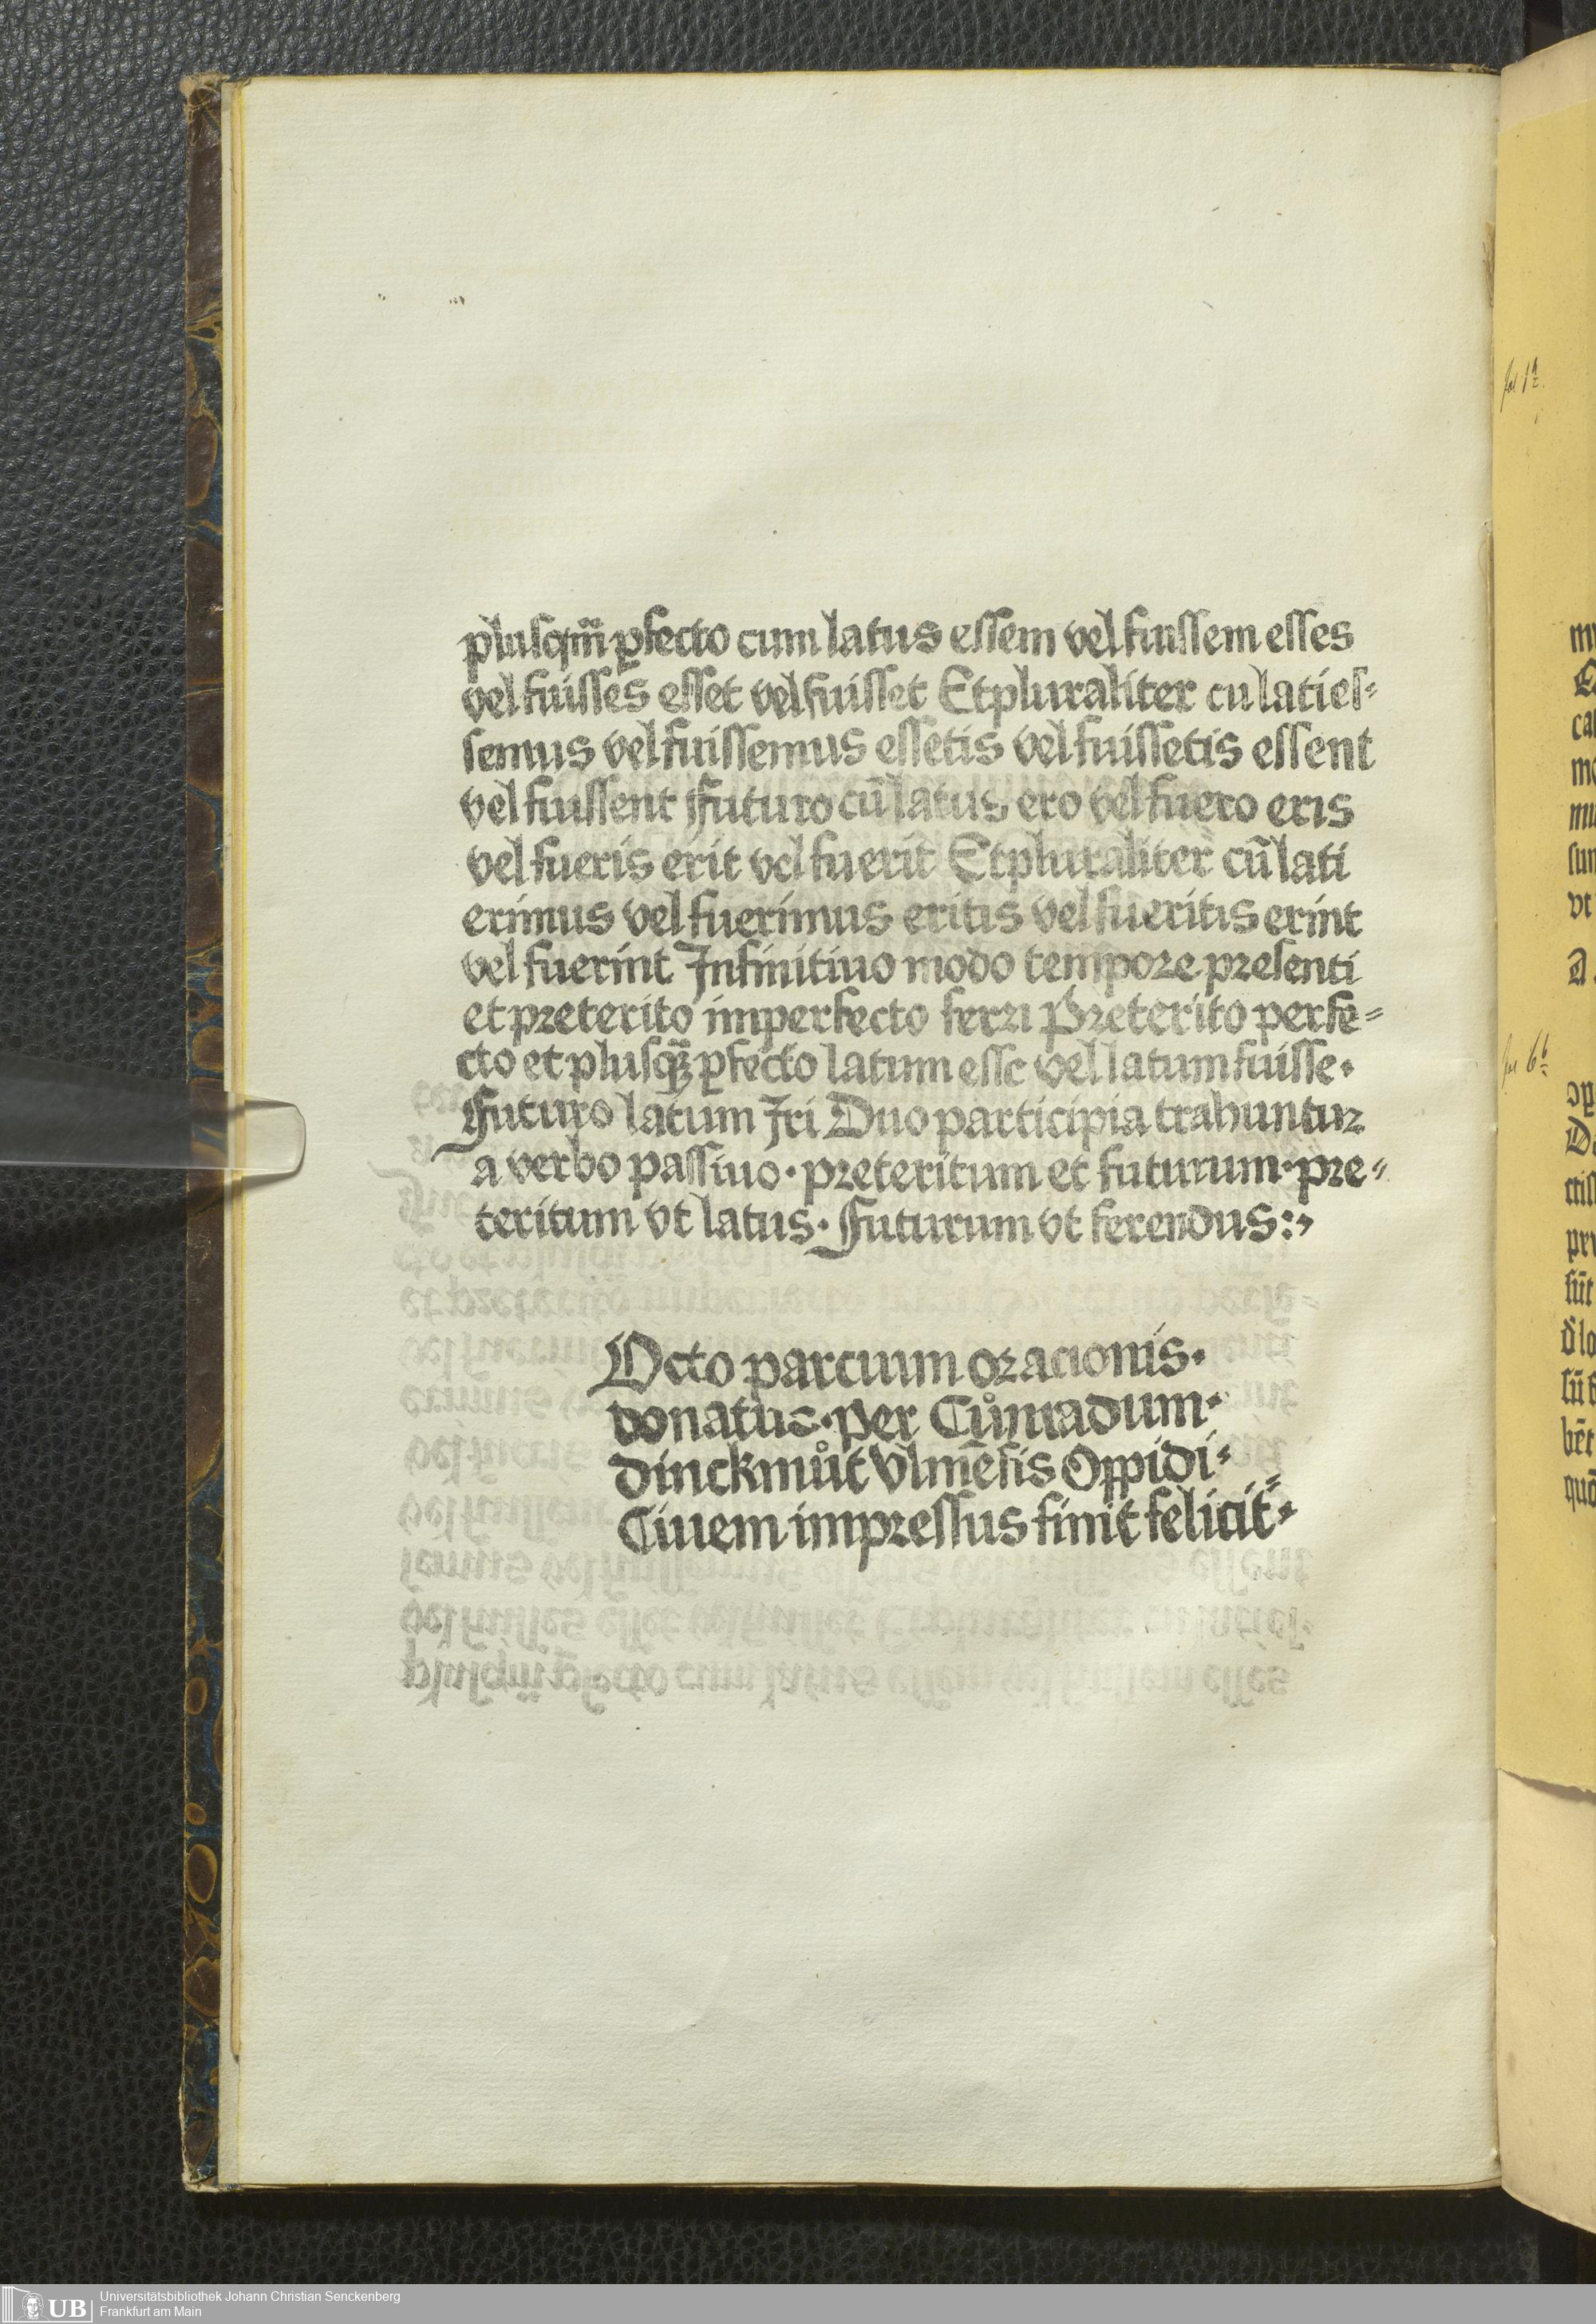 plusqm̄ ꝑfecto cum latus essem vel fuissem esses
vel fuisses esset vel fuisset Et pluraliter cu lati es⸗
semus vel fuissemus essetis vel fuissetis essent
vel fuissent Futuro cū latus ero vel fuero eris
vel fueris erit vel fuerit Et pluraliter cū lati
erimus vel fuerimus eritis vel fueritis erint
vel fuerint Infinitiuo modo tempore presenti
et preterito imperfecto ferri Preterito perfe⸗
cto et plusqꝫ ꝑfecto latum esse vel latum fuisse·
Futuro latum Iri Duo participia trahuntur
a verbo passiuo· preteritum et futurum· pre⸗
teritum vt latus· Futurum vt ferendus:⸗
Octo parcium oracionis·
donatus· per Cůnradum·
dinckmůt Vlmēsis Oppidi⸗
Ciuem impressus finit felicit̄·
fol 1a
fol 6b
Universitätsbibliothek Johann Christian Senckenberg
Frankfurt am Main
UB